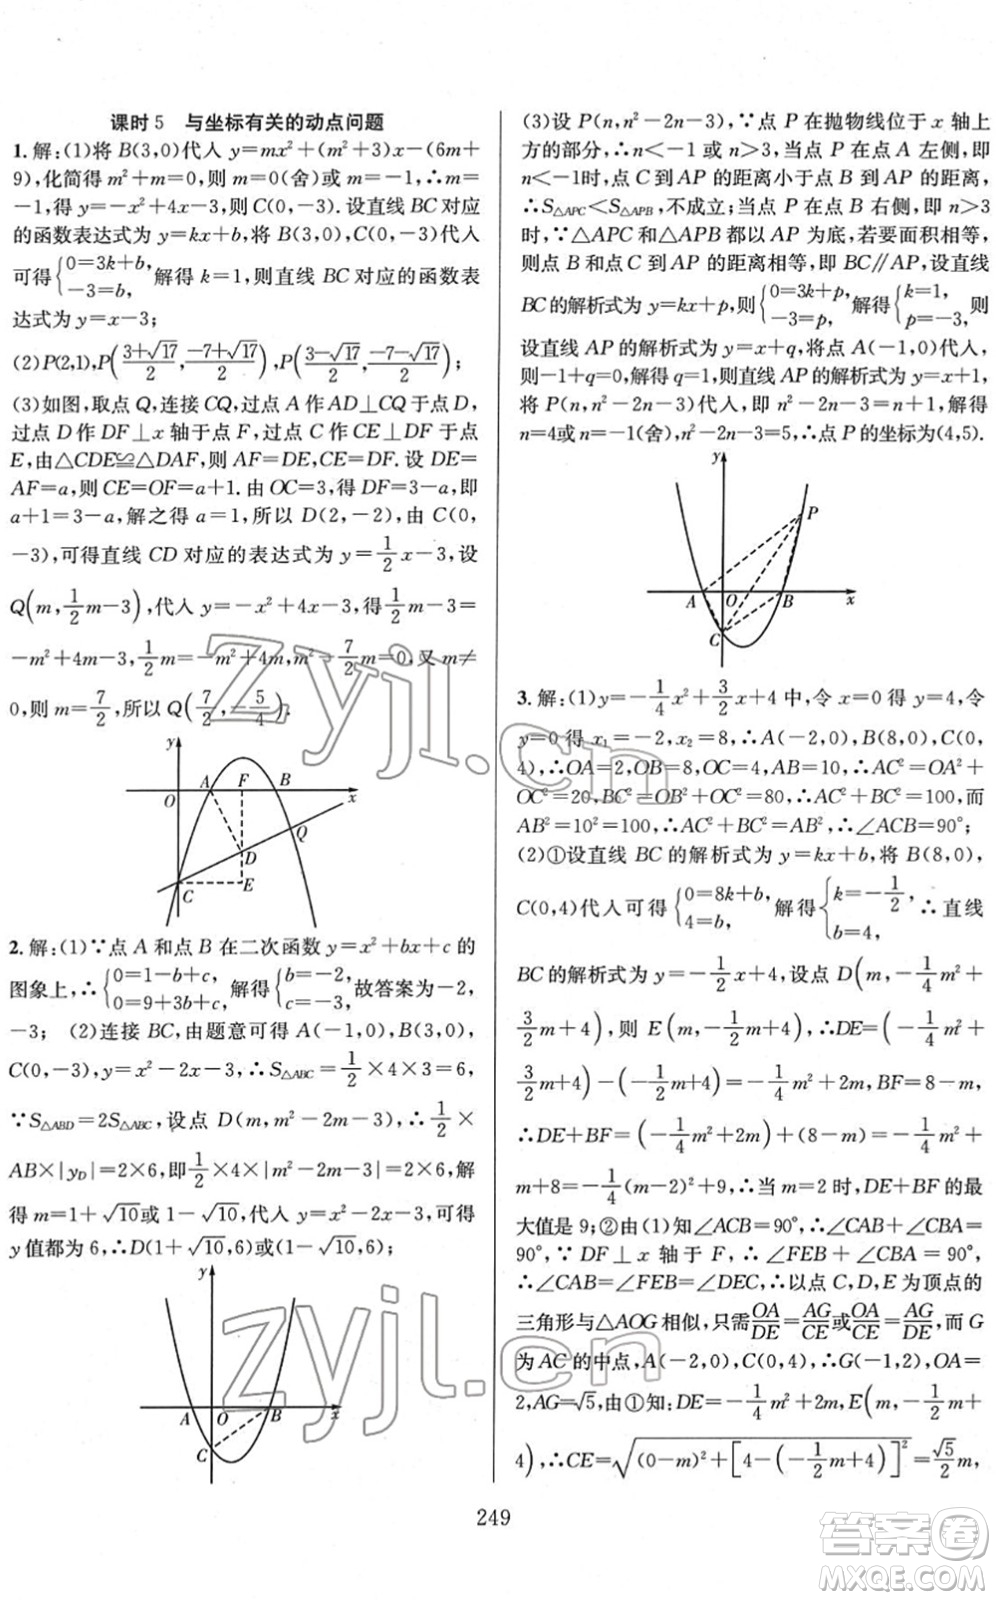 课时5 与坐标有关的动点问题
1.解:(1)将 B(3,0)代入 y=mx²+(m²+3)x-(6m+
9),化简得 m²+m=0,则 m=0(舍)或 m=-1,∴m=
-1,得 y=-x²+4x-3,则 C(0,-3).设直线 BC 对应
的函数表达式为 y=kx+b,将 B(3,0),C(0,-3)代入
可得{0=3k+b, -3=b, 解得 k=1,则直线 BC 对应的函数表
达式为 y=x-3;
(2)P(2,1),P((3+√17)/2,(-7+√17)/2),P((3-√17)/2,(-7-√17)/2);
(3)如图,取点 Q,连接 CQ,过点 A 作 AD⊥CQ 于点 D,
过点 D 作 DF⊥x 轴于点 F,过点 C 作 CE⊥DF 于点
E,由△CDE≌△DAF,则 AF=DE,CE=DF.设 DE=
AF=a,则 CE=OF=a+1.由 OC=3,得 DF=3-a,即
a+1=3-a,解之得 a=1,所以 D(2,-2),由 C(0,
-3),可得直线 CD 对应的表达式为 y=1/2x-3,设
Q(m,1/2m-3),代入 y=-x²+4x-3,得1/2m-3=
-m²+4m-3,1/2m=-m²+4m,m²-7/2m=0,又 m≠
0,则 m=7/2,所以 Q(7/2,-5/4).
y
A F B
O x
Q
D
C E
2.解:(1)∵点 A 和点 B 在二次函数 y=x²+bx+c 的
图象上,∴{0=1-b+c, 0=9+3b+c, 解得{b=-2, c=-3, 故答案为-2,
-3; (2)连接 BC,由题意可得 A(-1,0),B(3,0),
C(0,-3),y=x²-2x-3,∴S△ABC=1/2×4×3=6,
∵S△ABD=2S△ABC,设点 D(m,m²-2m-3),∴1/2×
AB×|yD|=2×6,即1/2×4×|m²-2m-3|=2×6,解
得 m=1+√10或 1-√10,代入 y=x²-2x-3,可得
y 值都为 6,∴D(1+√10,6)或(1-√10,6);
y
A O B x
C
(3)设 P(n,n²-2n-3),∵点 P 在抛物线位于 x 轴上
方的部分,∴n<-1 或 n>3,当点 P 在点 A 左侧,即
n<-1时,点 C 到 AP 的距离小于点 B 到 AP 的距离,
∴S△APC<S△APB,不成立;当点 P 在点 B 右侧,即 n>3
时,∵△APC 和△APB 都以 AP 为底,若要面积相等,
则点 B 和点 C 到 AP 的距离相等,即 BC∥AP,设直线
BC的解析式为 y=kx+p,则{0=3k+p, -3=p, 解得{k=1, p=-3, 则
设直线 AP 的解析式为 y=x+q,将点 A(-1,0)代入,
则-1+q=0,解得 q=1,则直线 AP 的解析式为 y=x+1,
将 P(n,n²-2n-3)代入,即 n²-2n-3=n+1,解得
n=4或 n=-1(舍),n²-2n-3=5,∴点 P 的坐标为(4,5).
y
P
A B x
C
3.解:(1)y=-1/4x²+3/2x+4 中,令 x=0 得 y=4,令
y=0 得 x₁=-2,x₂=8,∴A(-2,0),B(8,0),C(0,
4),∴OA=2,OB=8,OC=4,AB=10,∴AC²=OA²+
OC²=20,BC²=OB²+OC²=80,∴AC²+BC²=100,而
AB²=10²=100,∴AC²+BC²=AB²,∴∠ACB=90°;
(2)①设直线 BC 的解析式为 y=kx+b,将 B(8,0),
C(0,4)代入可得{0=8k+b, 4=b, 解得{k=-1/2, b=4, ∴直线
BC 的解析式为 y=-1/2x+4,设点 D(m,-1/4m²+
3/2m+4),则 E(m,-1/2m+4),∴DE=(-1/4m²+
3/2m+4)-(-1/2m+4)=-1/4m²+2m,BF=8-m,
∴DE+BF=(-1/4m²+2m)+(8-m)=-1/4m²+
m+8=-1/4(m-2)²+9,∴当 m=2 时,DE+BF 的最
大值是 9;②由(1)知∠ACB=90°,∴∠CAB+∠CBA=
90°,∵DF⊥x 轴于 F,∴∠FEB+∠CBA=90°,
∴∠CAB=∠FEB=∠DEC,∴以点 C,D,E 为顶点的
三角形与△AOG 相似,只需OA/DE=AG/CE或OA/CE=AG/DE,而 G
为 AC 的中点,A(-2,0),C(0,4),∴G(-1,2),OA=
2,AG=√5,由①知:DE=-1/4m²+2m,E(m,-1/2m+
4),∴CE=√((0-m)²+[4-(-1/2m+4)]²)=√5/2m,
249
zyjl.cn
zyjl.cn
答案卷
MXQE.COM